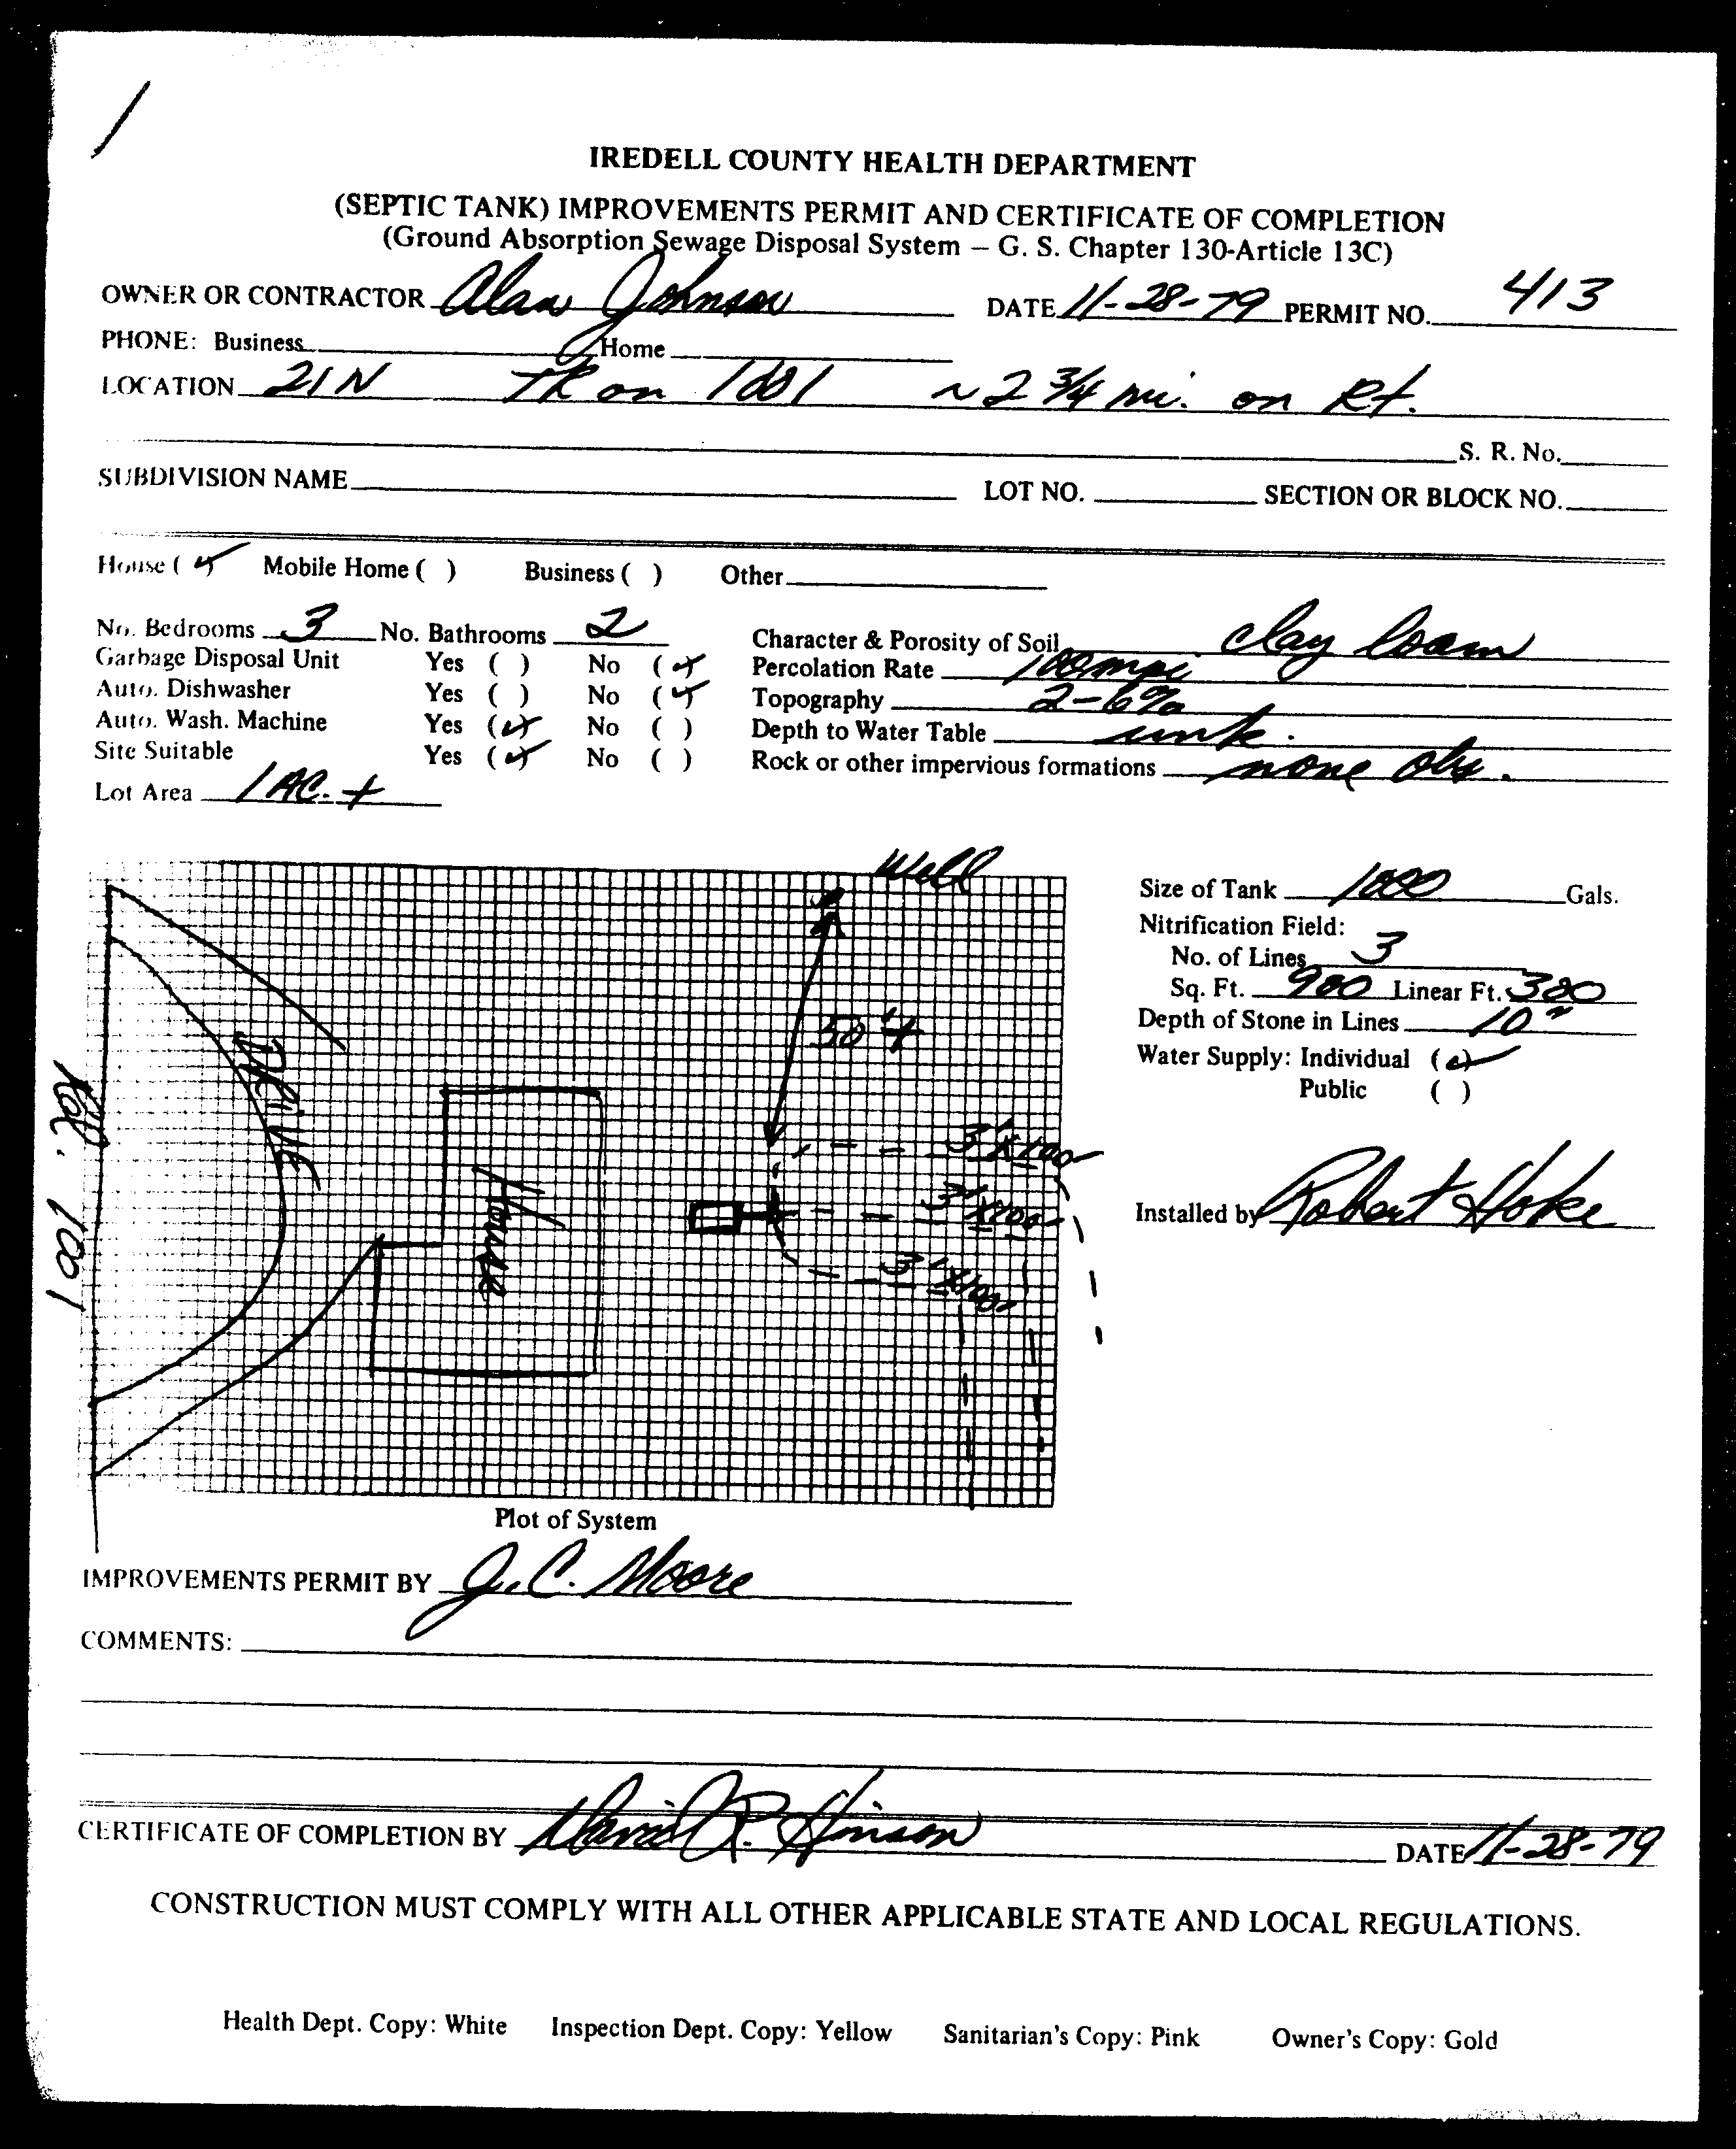 IREDELL COUNTY HEALTH DEPARTMENT
(SEPTIC TANK) IMPROVEMENTS PERMIT AND CERTIFICATE OF COMPLETION
(Ground Absorption Sewage Disposal System – G. S. Chapter 130-Article 13C)
OWNER OR CONTRACTOR Alan Johnson DATE 11-28-79 PERMIT NO. 413
PHONE: Business Home
LOCATION 21N TR on 1001 ~2 3/4 mi. on Rt.
S. R. No.
SUBDIVISION NAME LOT NO. SECTION OR BLOCK NO.
House ( ✓ ) Mobile Home ( ) Business ( ) Other
No. Bedrooms 3 No. Bathrooms 2 Character & Porosity of Soil clay loam
Garbage Disposal Unit Yes ( ) No ( ✓ ) Percolation Rate 100mpi
Auto. Dishwasher Yes ( ) No ( ✓ ) Topography 2-6%
Auto. Wash. Machine Yes ( ✓ ) No ( ) Depth to Water Table unk.
Site Suitable Yes ( ✓ ) No ( ) Rock or other impervious formations none obs.
Lot Area 1 AC. +
Well
50'+
DRIVE
RD. 1001
House
3'x100'
3'x100'
3'x100'
Size of Tank 1000 Gals.
Nitrification Field:
No. of Lines 3
Sq. Ft. 900 Linear Ft. 300
Depth of Stone in Lines 10"
Water Supply: Individual ( ✓ )
Public ( )
Installed by Robert Hoke
Plot of System
IMPROVEMENTS PERMIT BY J.C. Moore
COMMENTS:
CERTIFICATE OF COMPLETION BY David R. Hinson DATE 11-28-79
CONSTRUCTION MUST COMPLY WITH ALL OTHER APPLICABLE STATE AND LOCAL REGULATIONS.
Health Dept. Copy: White Inspection Dept. Copy: Yellow Sanitarian's Copy: Pink Owner's Copy: Gold